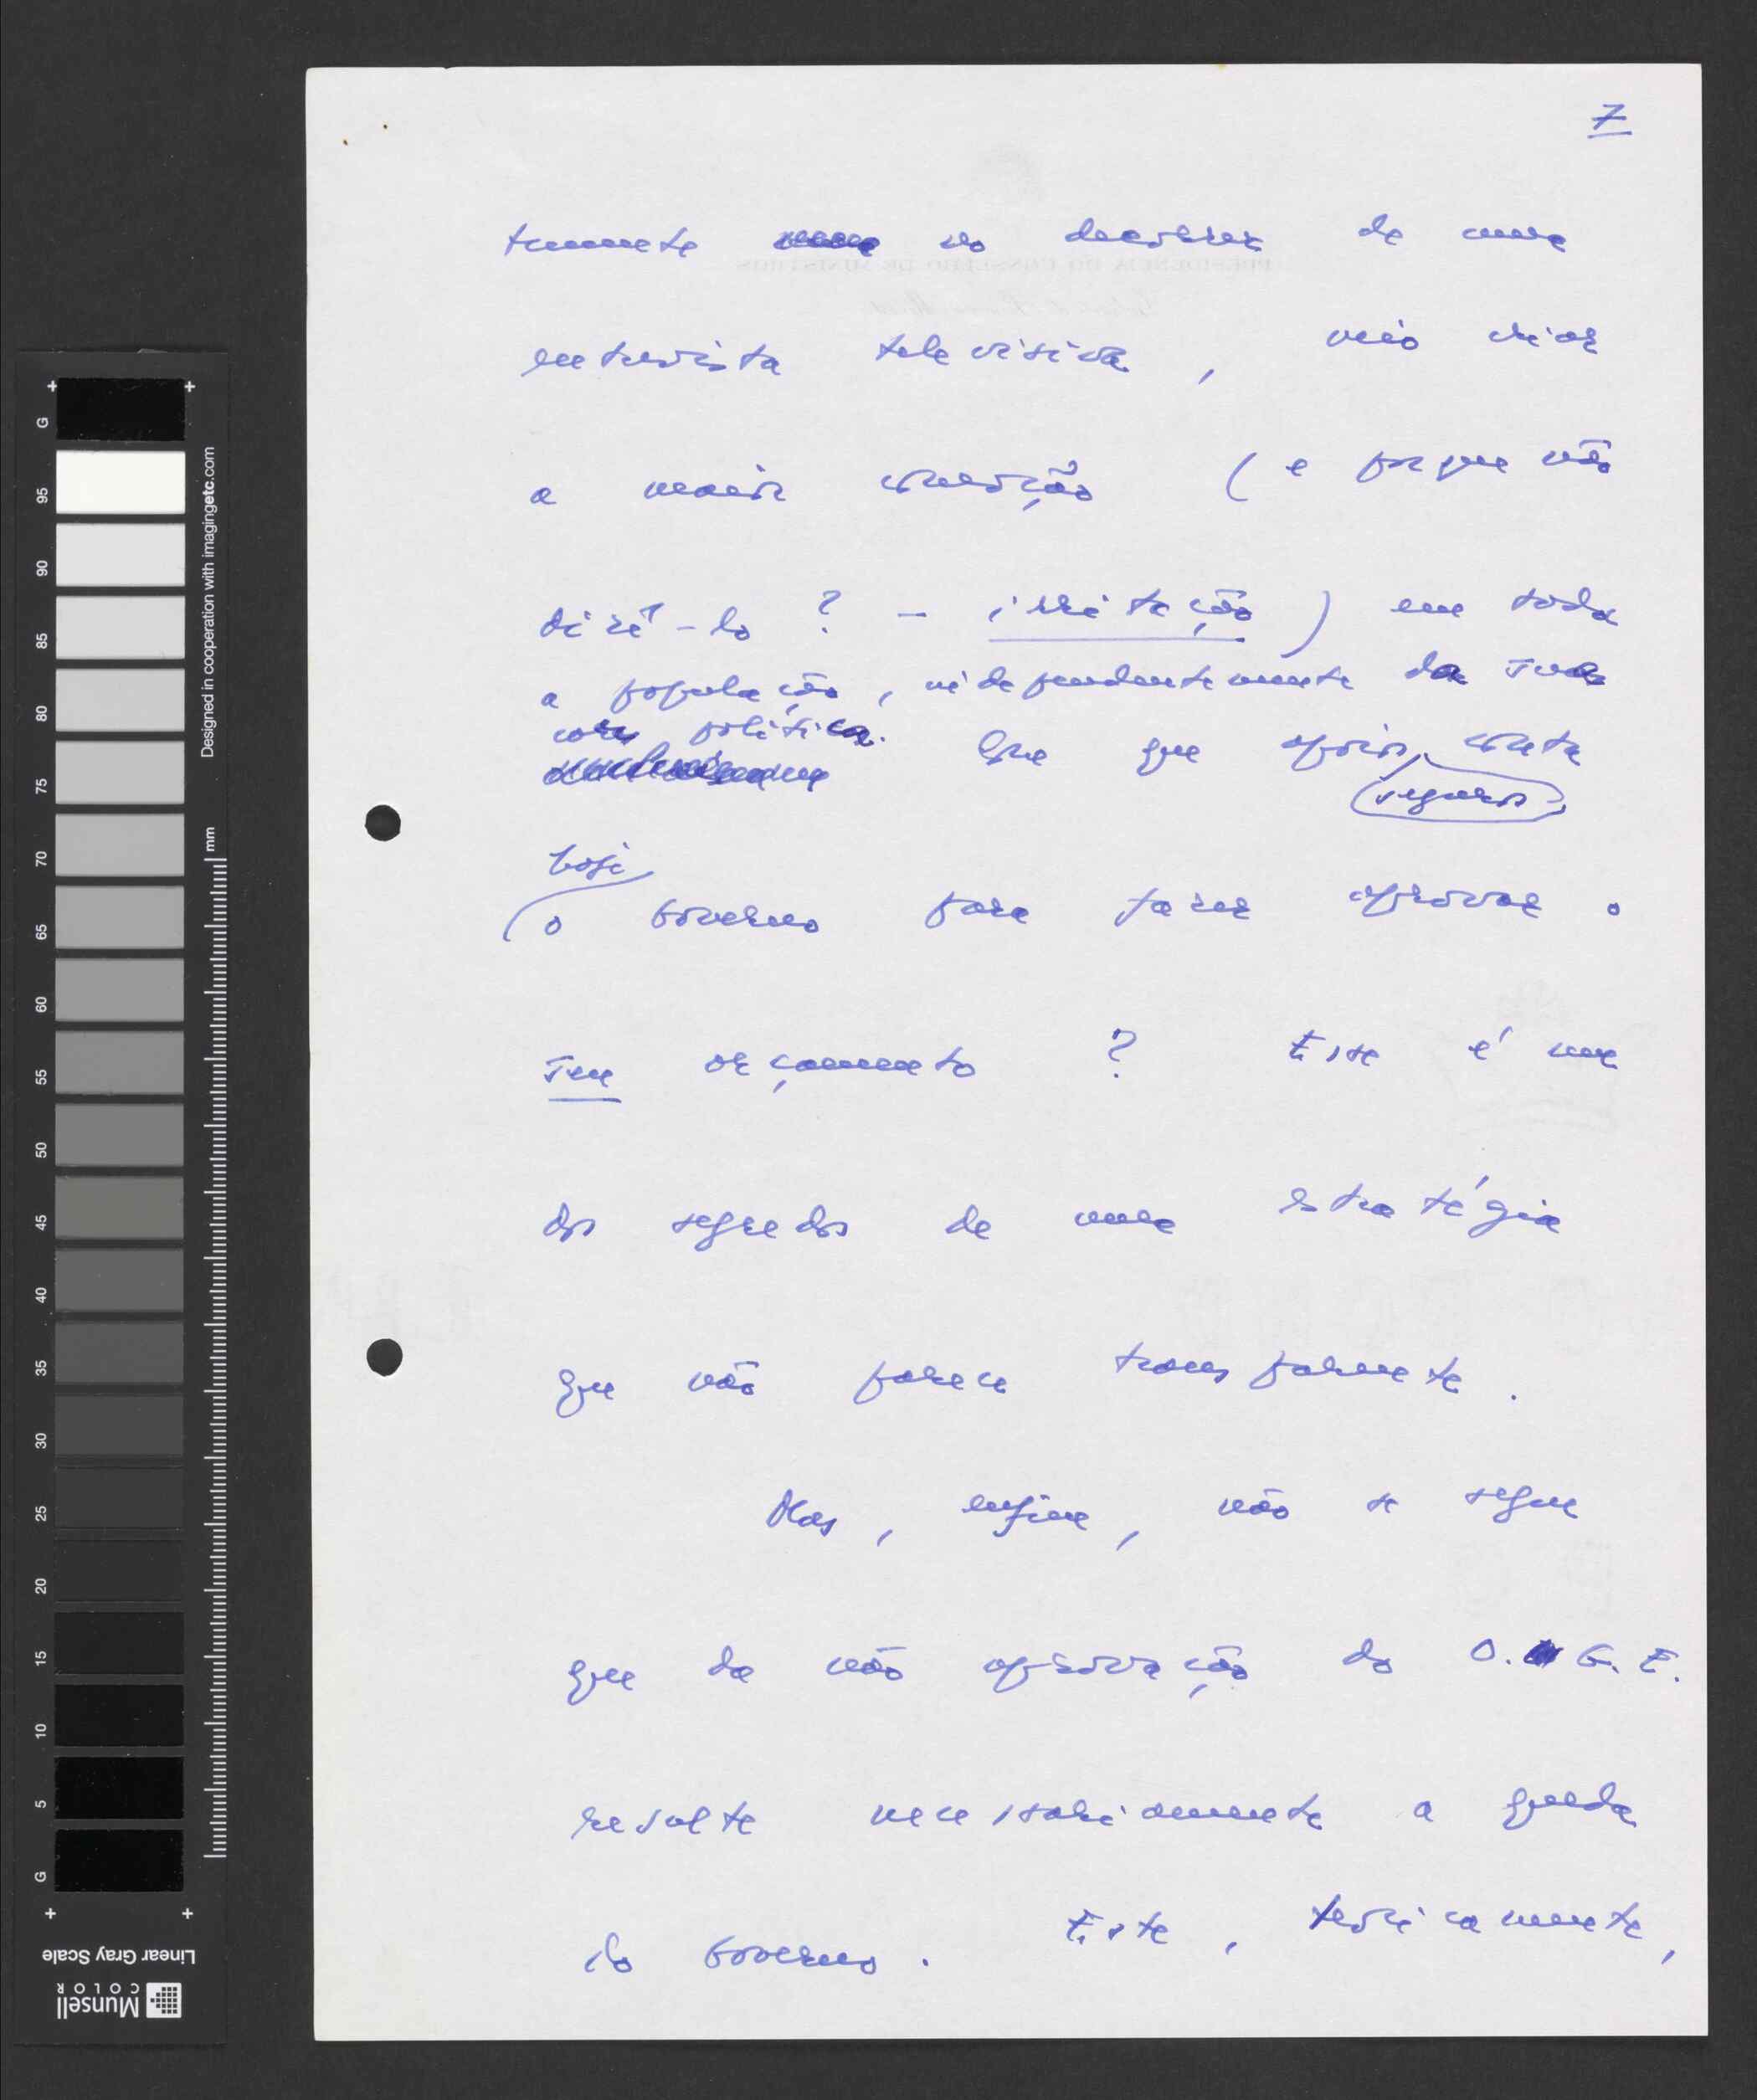 7
temente no decorrer de uma
entrevista televisiva, veio criar
a maior comoção (e porque não
dizê-lo? – irritação) em toda
a população, independentemente da sua
cor política. Com que apoio, conta
seguro,
hoje
o Governo para fazer aprovar o
seu orçamento? Esse é um
dos segredos de uma estratégia
que não parece transparente.
Mas, enfim, não se segue
que da não aprovação do O.G.E.
resulte necessariamente a queda
do Governo. Este, teoricamente,
G 95 90 85 80 75 70 65 60 55 50 45 40 35 30 25 20 15 10 5 G
Designed in cooperation with imagingetc.com
mm
Linear Gray Scale
Munsell
COLOR